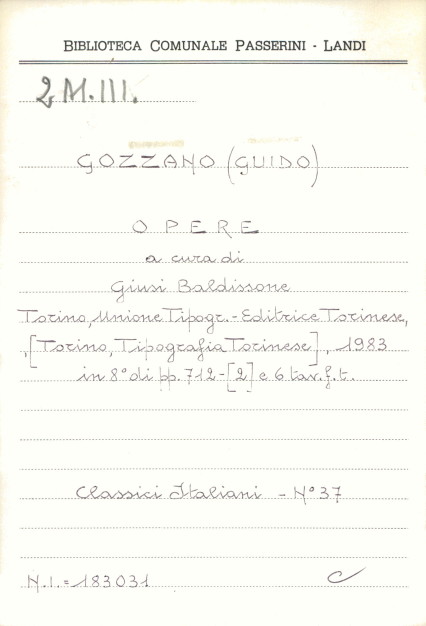 BIBLIOTECA COMUNALE PASSERINI - LANDI
2 M.III.
GOZZANO (GUIDO)
OPERE
a cura di
Giusi Baldissone
Torino, Unione Tipogr.-Editrice Torinese,
[Torino, Tipografia Torinese], 1983
in 8° di pp. 712-[2] e 6 tav. f. t.
Classici Italiani - N° 37
N.I. = 183031 C